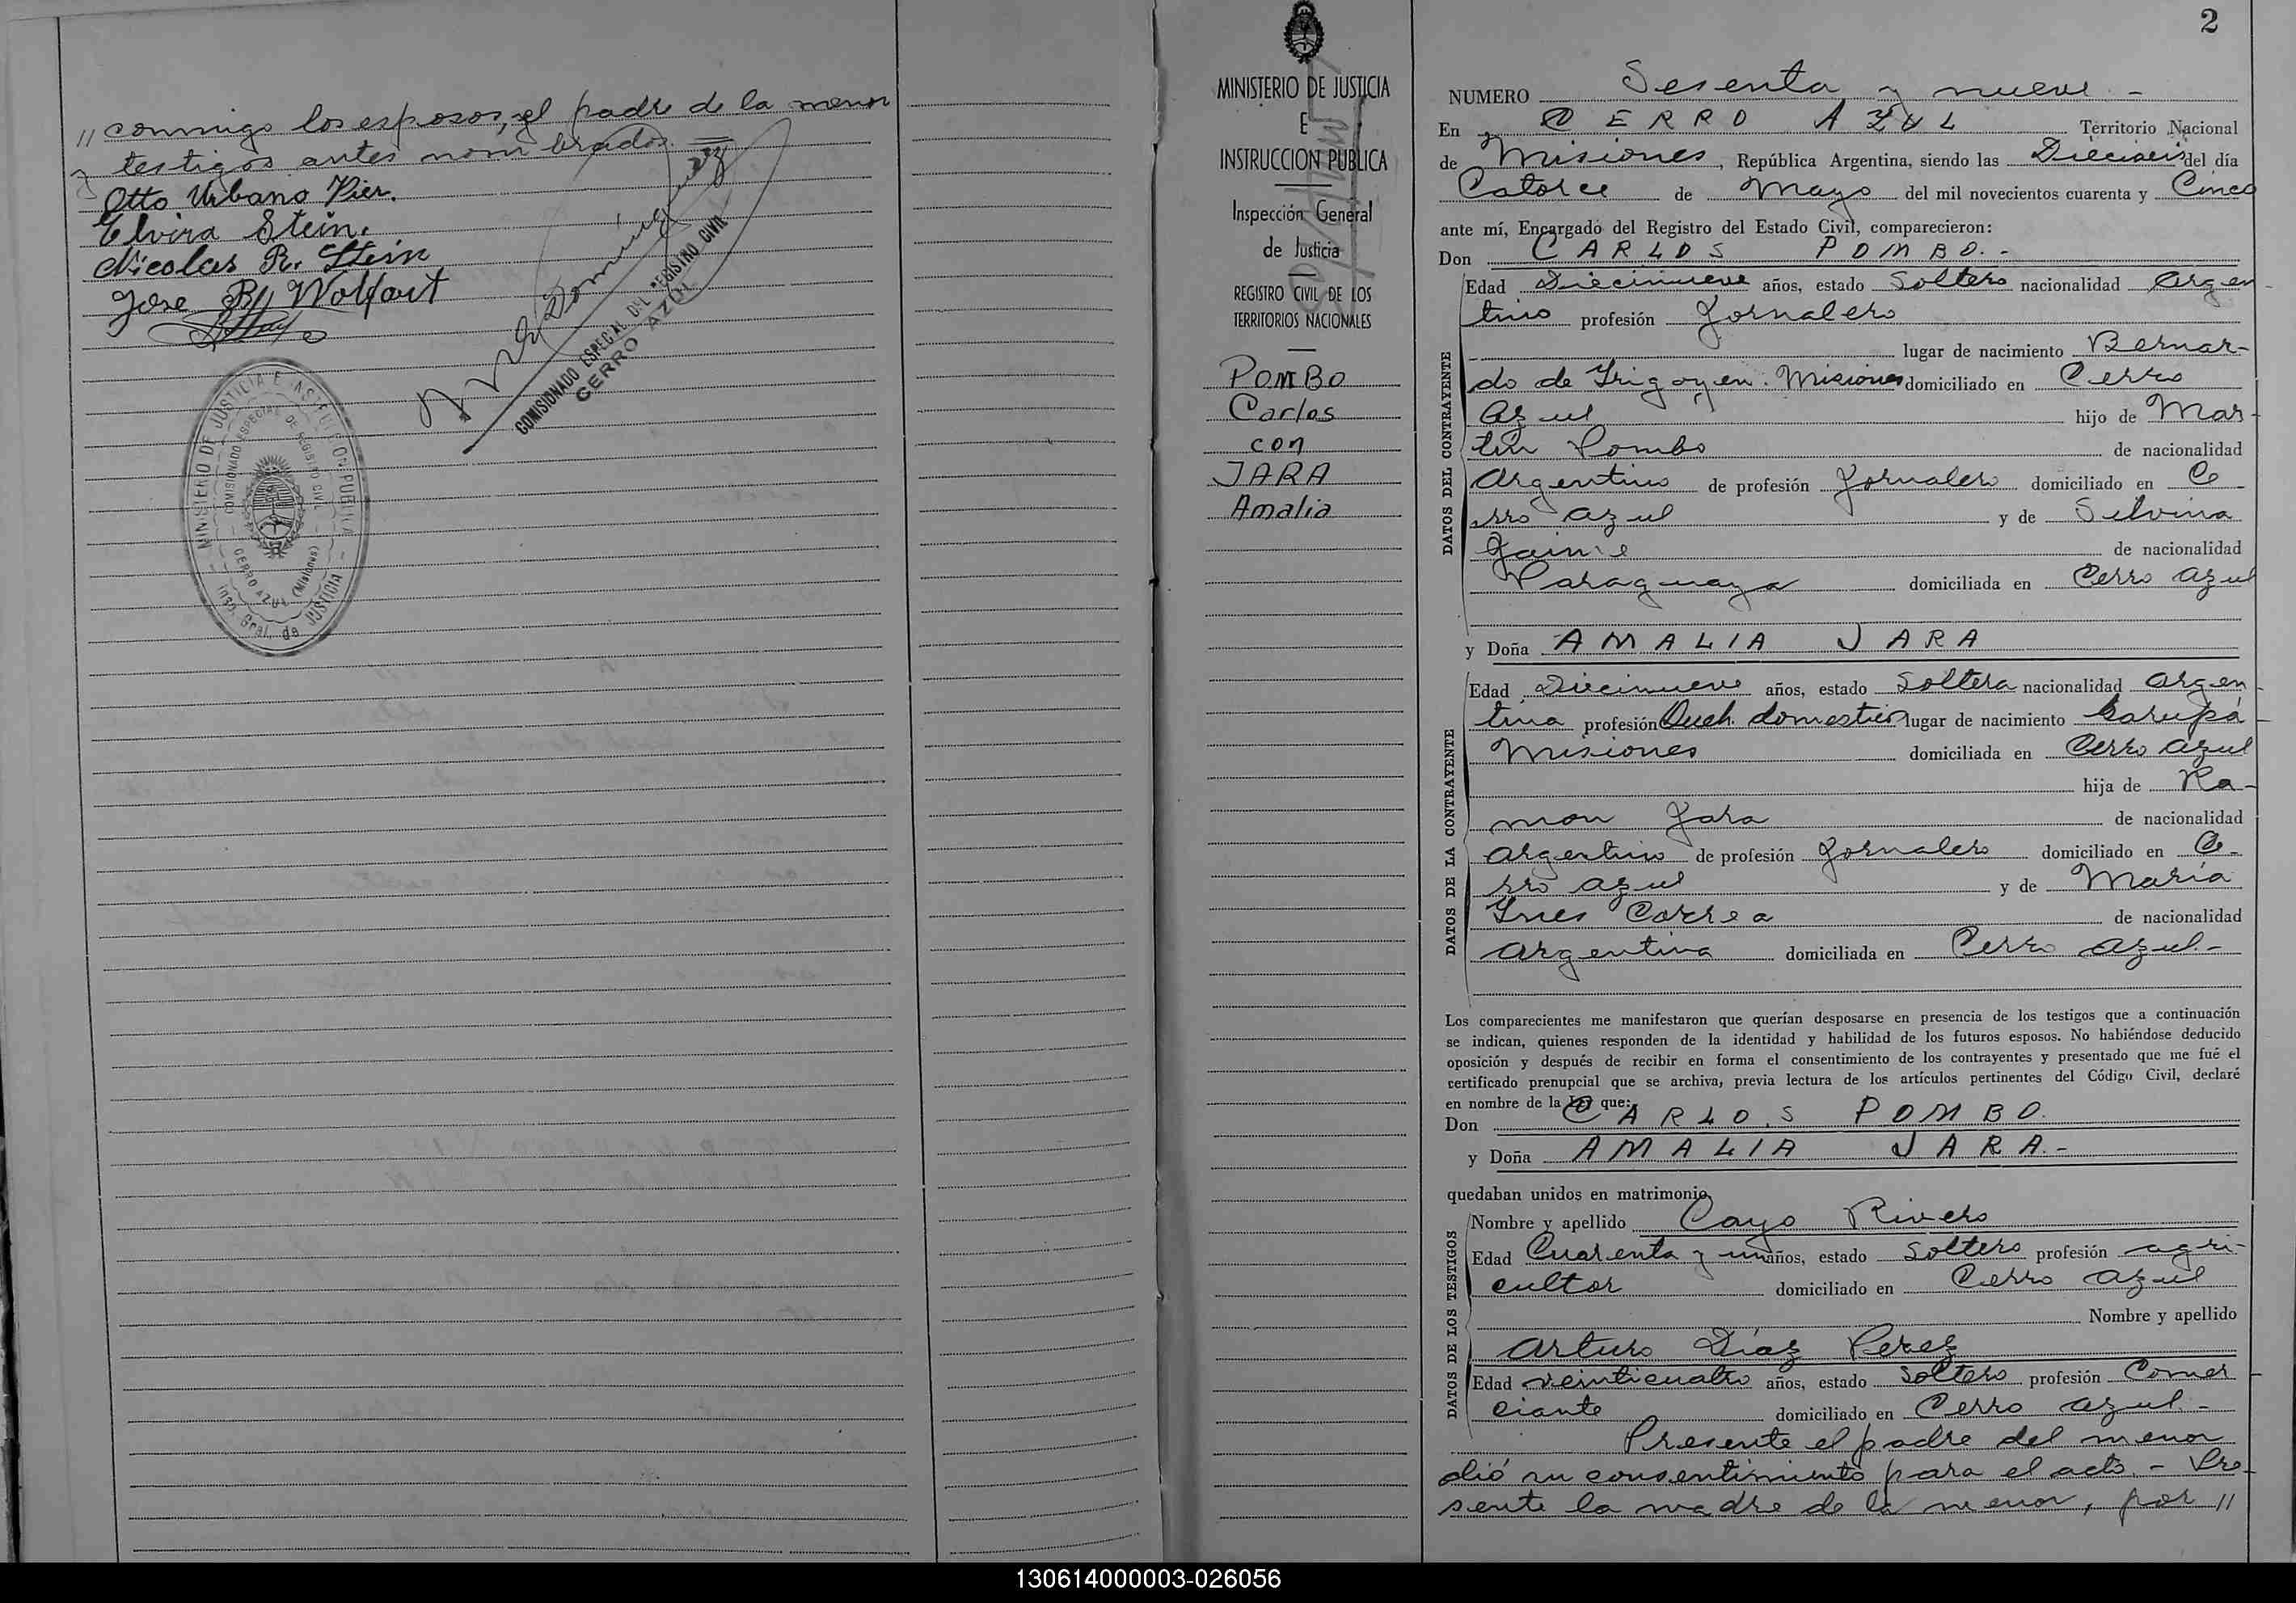 " conmigo los esposos, el padre de la menor
y testigos antes nombrados.
Otto Urbano Pier.
Elvira Stein.
Nicolas R. Stein
Jose By Wolfart
COMISIONADO ESPECIAL DEL REGISTRO CIVIL
CERRO AZUL
MINISTERIO DE JUSTICIA E INSTRUCCION PUBLICA
Insp. Gral. de JUSTICIA
COMISIONADO ESPECIAL DE REGISTRO CIVIL
CERRO AZUL (Misiones)
MINISTERIO DE JUSTICIA
E
INSTRUCCION PUBLICA
Inspección General
de Justicia
REGISTRO CIVIL DE LOS
TERRITORIOS NACIONALES
POMBO
Carlos
con
JARA
Amalia
2
NUMERO Sesenta y nueve -
En CERRO AZUL Territorio Nacional
de Misiones, República Argentina, siendo las Dieciseis del día
Catorce de Mayo del mil novecientos cuarenta y Cinco
ante mí, Encargado del Registro del Estado Civil, comparecieron:
Don CARLOS POMBO.-
DATOS DEL CONTRAYENTE
Edad Diecinueve años, estado Soltero nacionalidad Argen
tino profesión Jornalero
lugar de nacimiento Bernar-
do de Irigoyen. Misiones domiciliado en Cerro
Azul hijo de Mar-
tin Pombo de nacionalidad
Argentino de profesión Jornalero domiciliado en Ce
rro Azul y de Silvina
Jaime de nacionalidad
Paraguaya domiciliada en Cerro Azul
y Doña AMALIA JARA
DATOS DE LA CONTRAYENTE
Edad Diecinueve años, estado Soltera nacionalidad Argen
tina profesión Queh. domesticos lugar de nacimiento Garupá
Misiones domiciliada en Cerro Azul
hija de Ra-
mon Jara de nacionalidad
Argentino de profesión Jornalero domiciliado en Ce-
rro Azul y de Maria
Ines Correa de nacionalidad
Argentina domiciliada en Cerro Azul.-
Los comparecientes me manifestaron que querían desposarse en presencia de los testigos que a continuación
se indican, quienes responden de la identidad y habilidad de los futuros esposos. No habiéndose deducido
oposición y después de recibir en forma el consentimiento de los contrayentes y presentado que me fué el
certificado prenupcial que se archiva, previa lectura de los artículos pertinentes del Código Civil, declaré
en nombre de la Ley que:
Don CARLOS POMBO.
y Doña AMALIA JARA.-
quedaban unidos en matrimonio
DATOS DE LOS TESTIGOS
Nombre y apellido Cayo Rivero
Edad Cuarenta y un años, estado Soltero profesión agri-
cultor domiciliado en Cerro Azul
Nombre y apellido
Arturo Díaz Perez
Edad veinticuatro años, estado Soltero profesión Comer
ciante domiciliado en Cerro Azul.-
Presente el padre del menor
dió su consentimiento para el acto.- Pre
sente la madre de la menor, por "
130614000003-026056